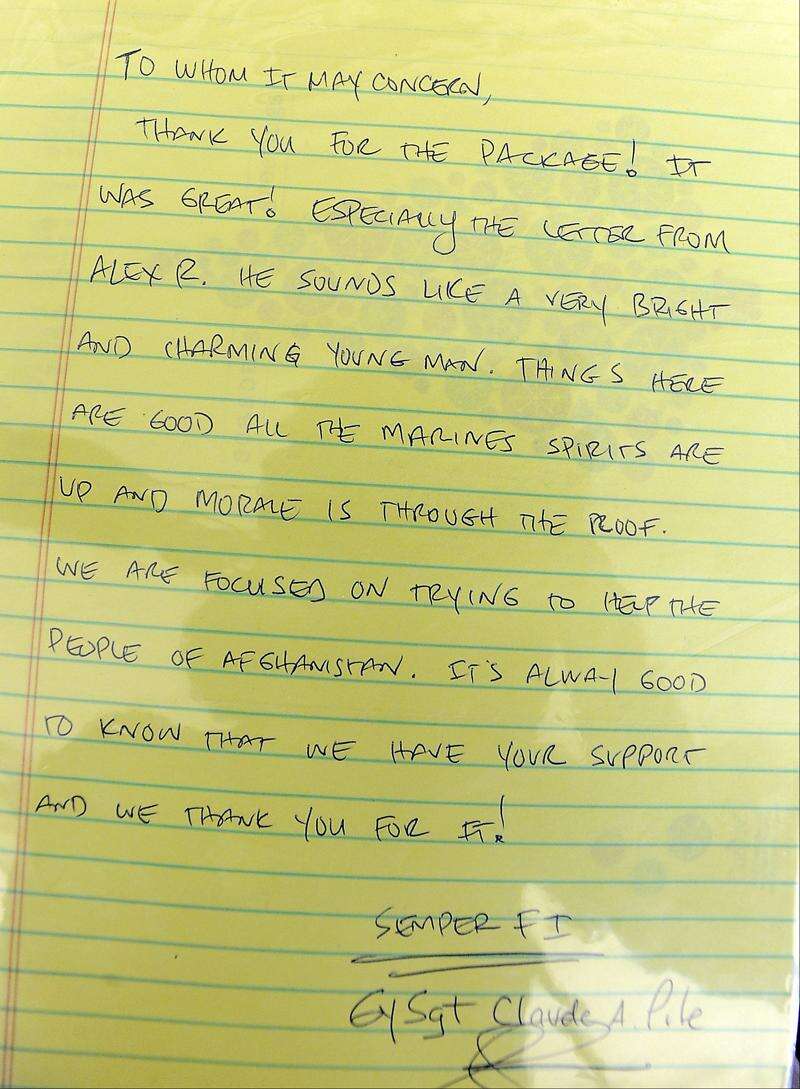 TO WHOM IT MAY CONCERN,
THANK YOU FOR THE PACKAGE! IT
WAS GREAT! ESPECIALLY THE LETTER FROM
ALEX R. HE SOUNDS LIKE A VERY BRIGHT
AND CHARMING YOUNG MAN. THINGS HERE
ARE GOOD ALL THE MARINES SPIRITS ARE
UP AND MORALE IS THROUGH THE ROOF.
WE ARE FOCUSED ON TRYING TO HELP THE
PEOPLE OF AFGHANISTAN. IT'S ALWAY GOOD
TO KNOW THAT WE HAVE YOUR SUPPORT
AND WE THANK YOU FOR IT!
SEMPER FI
GySgt Claude A. Pile